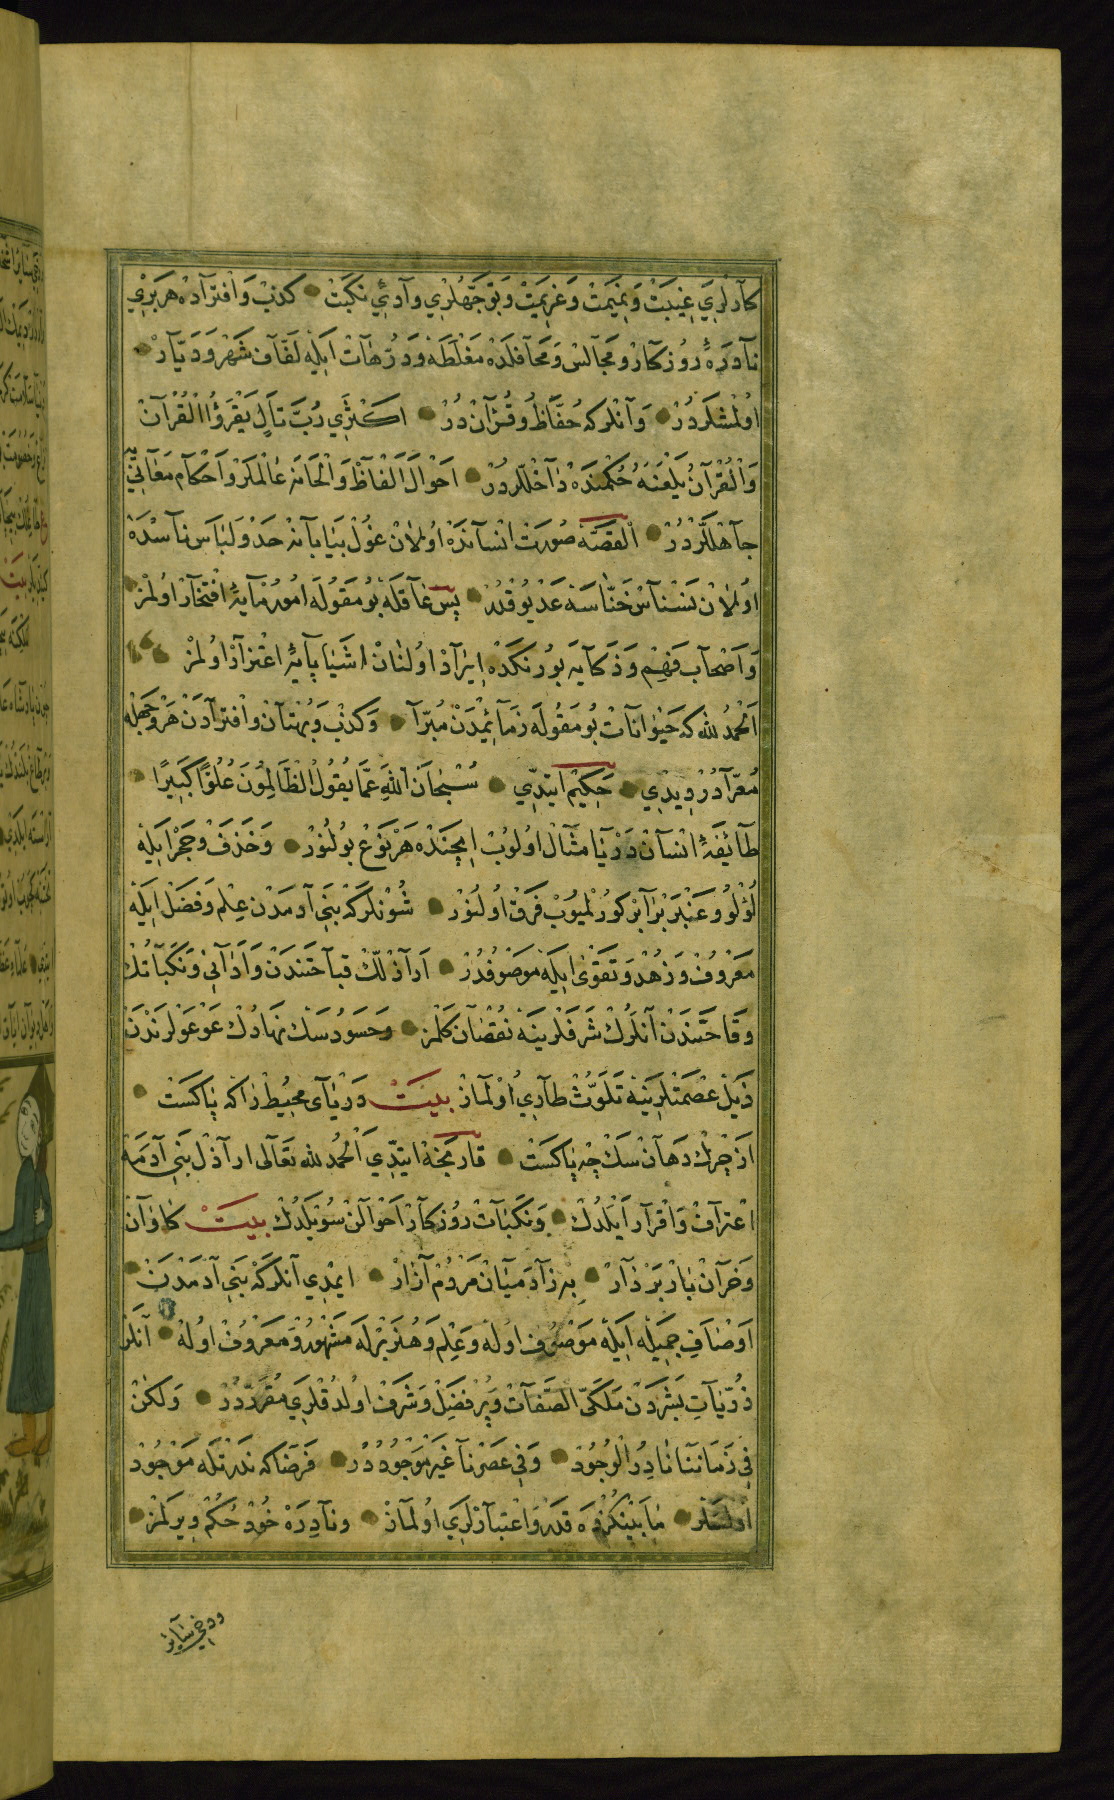 كارلری غیبت و نمیمت و عزیمت و توجهلری وادئ نكبت كذب و افتراده هر بری
نادره روزكار و مجالس و محافلده مغلطه و درهات ایله لفاف شهر و دیار
اولمشلردر و انلر كه حفاظ قرآن در اكثری رب تال یقرؤا القرآن
والقرآن یلعنه حكمنده داخللردر احوال الفاظ و الحانه عالملر و احكام معانی یه
جاهللردر القصه صورت انسانده اولان غول بیابانه حد و لباس ناسده
اولان نسناس خناسه عد یوقدر پس عاقله بو مقوله امور مایۀ افتخار اولمز
و اصحاب فهم و ذكایه بو رنكده ایراد اولنان اشیا پایۀ اعتزاز اولمز
الحمد لله كه حیوانات بو مقوله ذمائمیدن مبرا و كذب و بهتان و افترادن هر وجهله
معرادر دیدی حكیم ایتدی سبحان الله عما یقول الظالمون علوا كبیرا
طائفۀ انسان دریا مثال اولوب ایچنده هر نوع بولنور و خذف و حجر ایله
لؤلؤ و عنبر برابر كورلمیوب فرق اولنور شونلر كه بنی آدمدن علم و فضل ایله
معروف و زهد و تقوی ایله موصوفدر اراذلك قباحتندن و ادانی و نكباتك
وقاحتندن انلرك شرفلرینه نقصان كلمز و حسود سك نهادك عوعولرندن
ذیل عصمتلرینه تلوث طاری اولماز بیت دریای محیط را كه پاكست
از چرك دهان سك چه باكست قارمجه ایتدی الحمد لله تعالی اراذل بنی آدمه
اعتراف و اقرار ایلدك و نكبات روزكار احوالن سویلدك بیت كاوان
و خران بار بردار به ز آدمیان مردم آزار ایمدی انلر كه بنی آدمدن
اوصاف جمیله ایله موصوف اوله و علم و هنر برله مشهور و معروف اوله انلر
ذریات بشردن ملكی الصفات و پر فضل و شرف اولدقلری مقرردر و لكن
فی زماننا نادر الوجود و فی عصرنا غیر موجوددر فرضا كه ندرتله موجود
اولسلر ما بینكزده قدر و اعتبارلری اولماز و نادره خود حكم ویرلمز
ودخی سایر